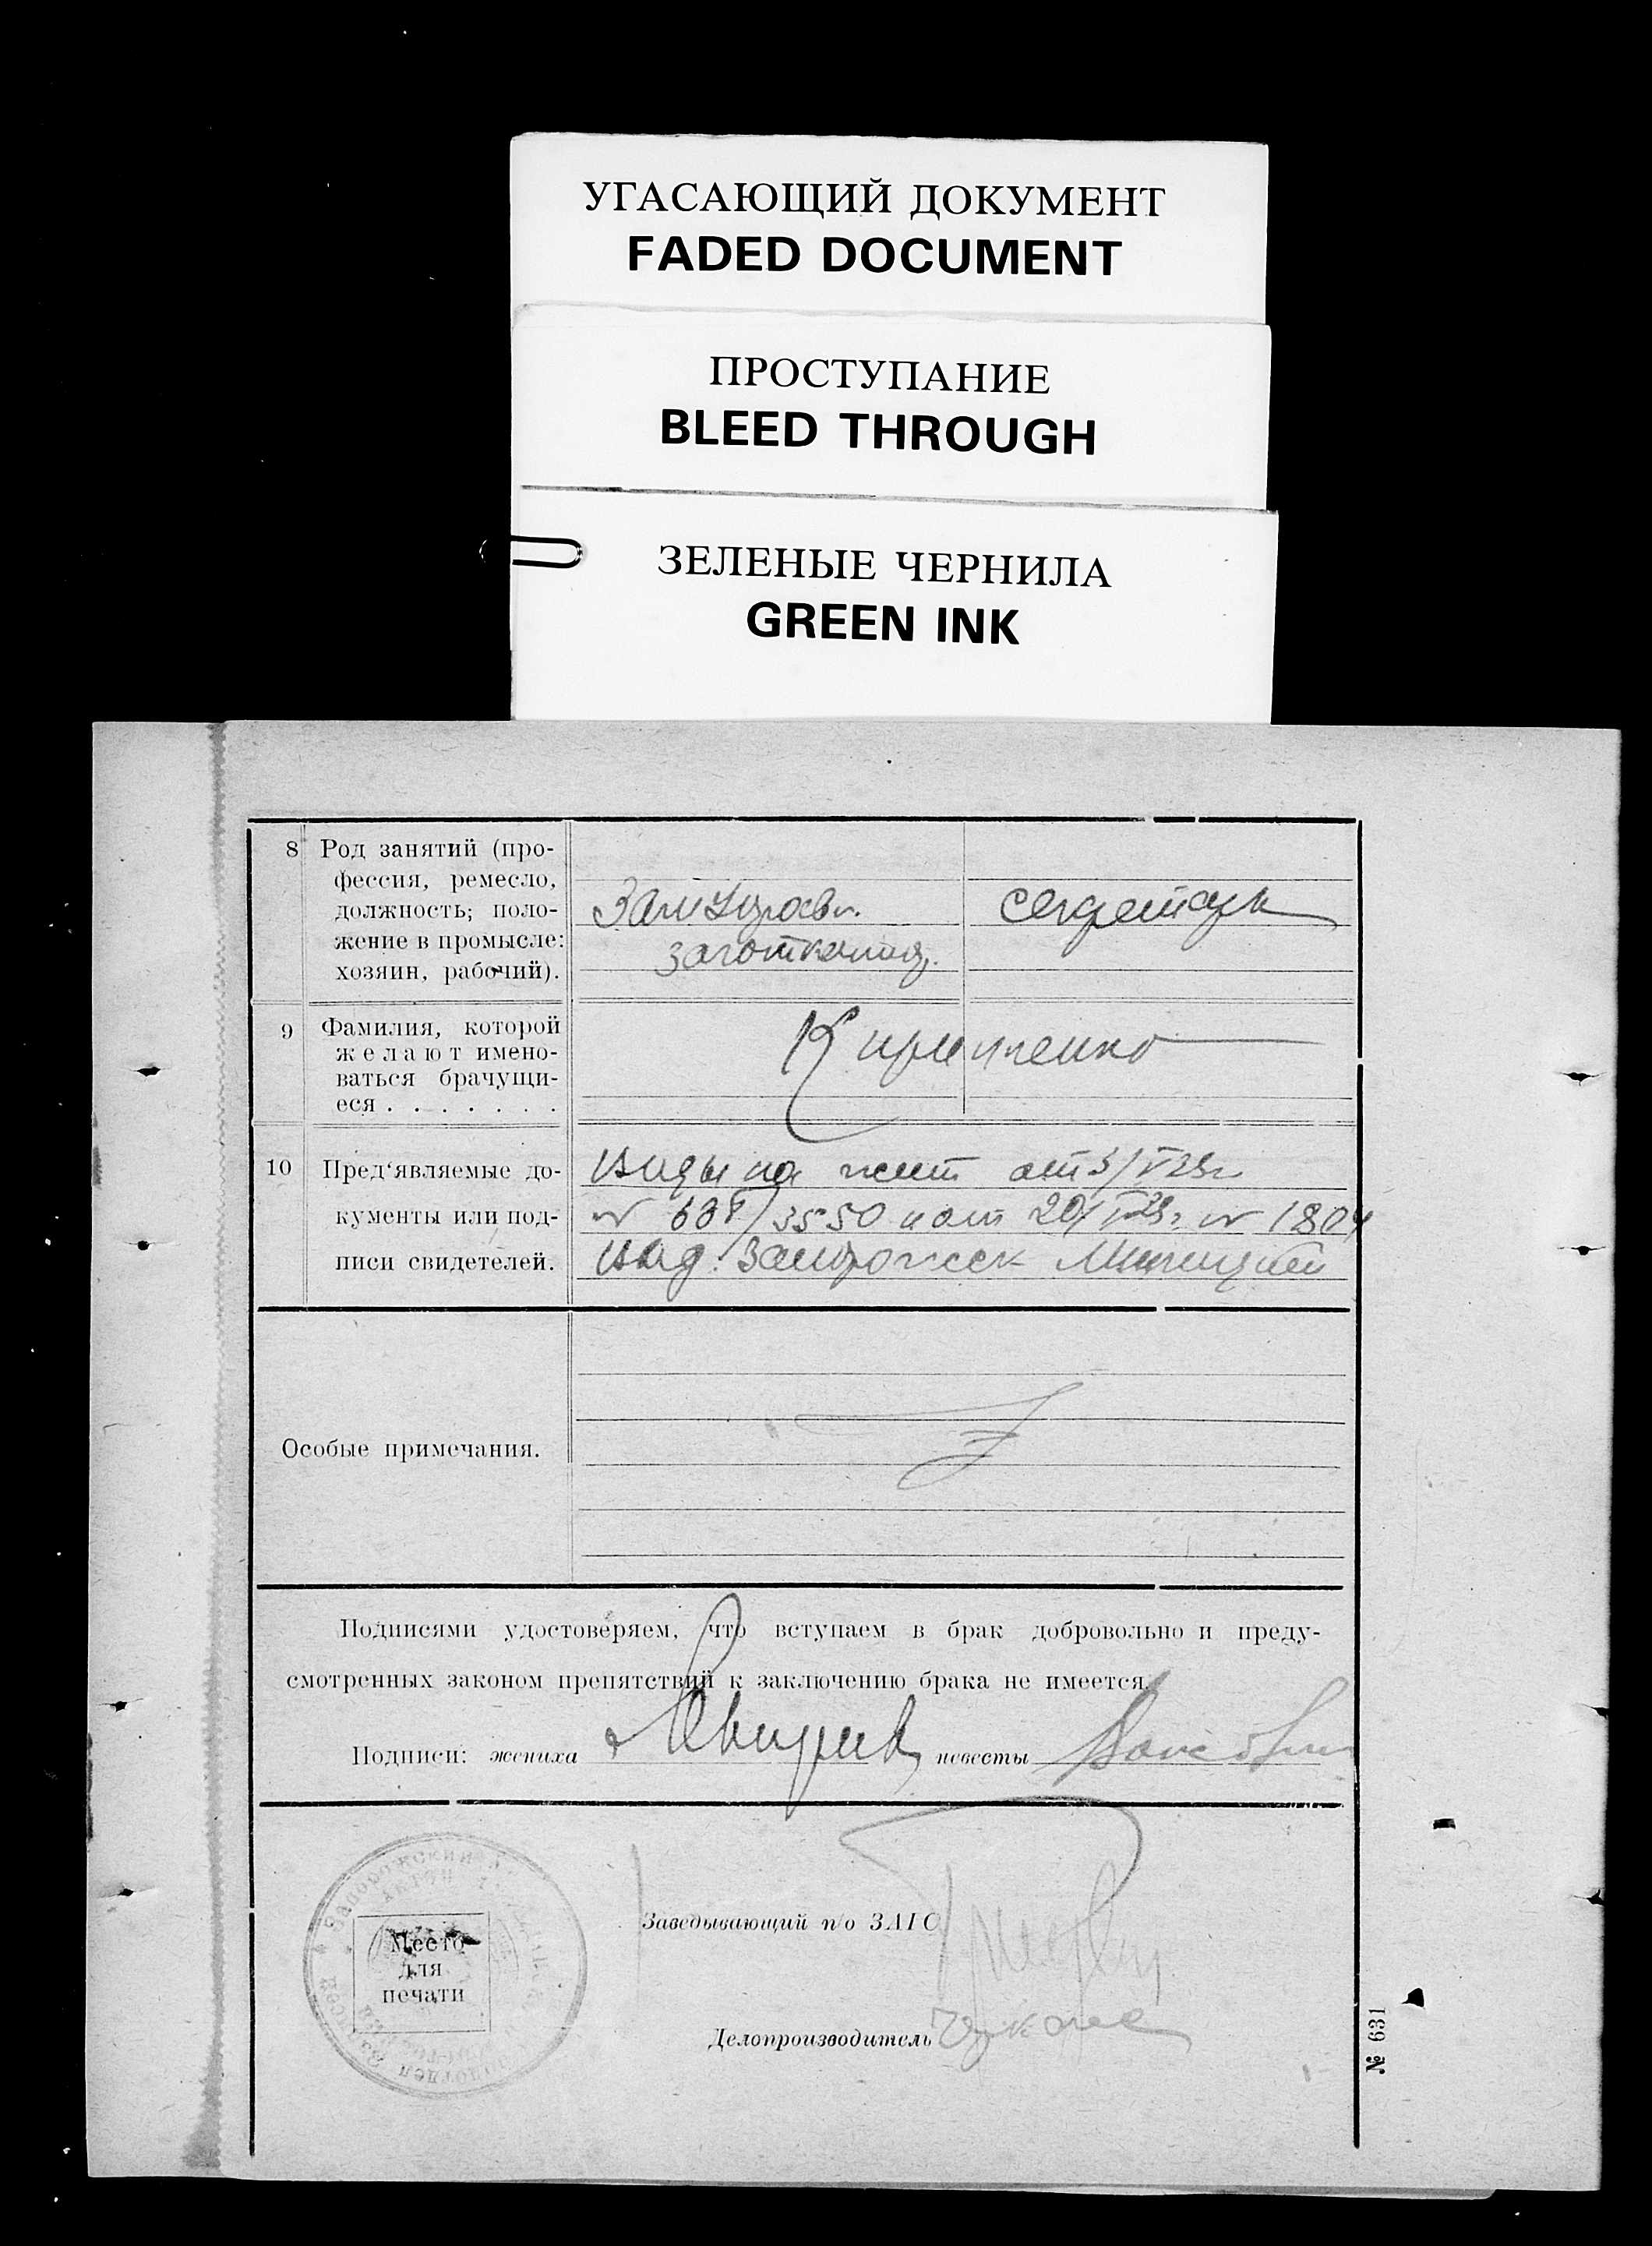 УГАСАЮЩИЙ ДОКУМЕНТ
FADED DOCUMENT
ПРОСТУПАНИЕ
BLEED THROUGH
ЗЕЛЕНЫЕ ЧЕРНИЛА
GREEN INK
8 Род занятий (про-
фессия, ремесло,
должность; поло-
жение в промысле:
хозяин, рабочий).
секретарь
9 Фамилия, которой
желают имено-
ваться брачущи-
еся . . . . . . .
10 Пред'являемые до-
кументы или под-
писи свидетелей.
Виды на жит от
3550 и от 1804
выд. Запорожск Милицией
Особые примечания.
Подписями удостоверяем, что вступаем в брак добровольно и преду-
смотренных законом препятствий к заключению брака не имеется.
Подписи: жениха невесты
Место
для
печати
Заведывающий п/о ЗАГС
Делопроизводитель
№ 631